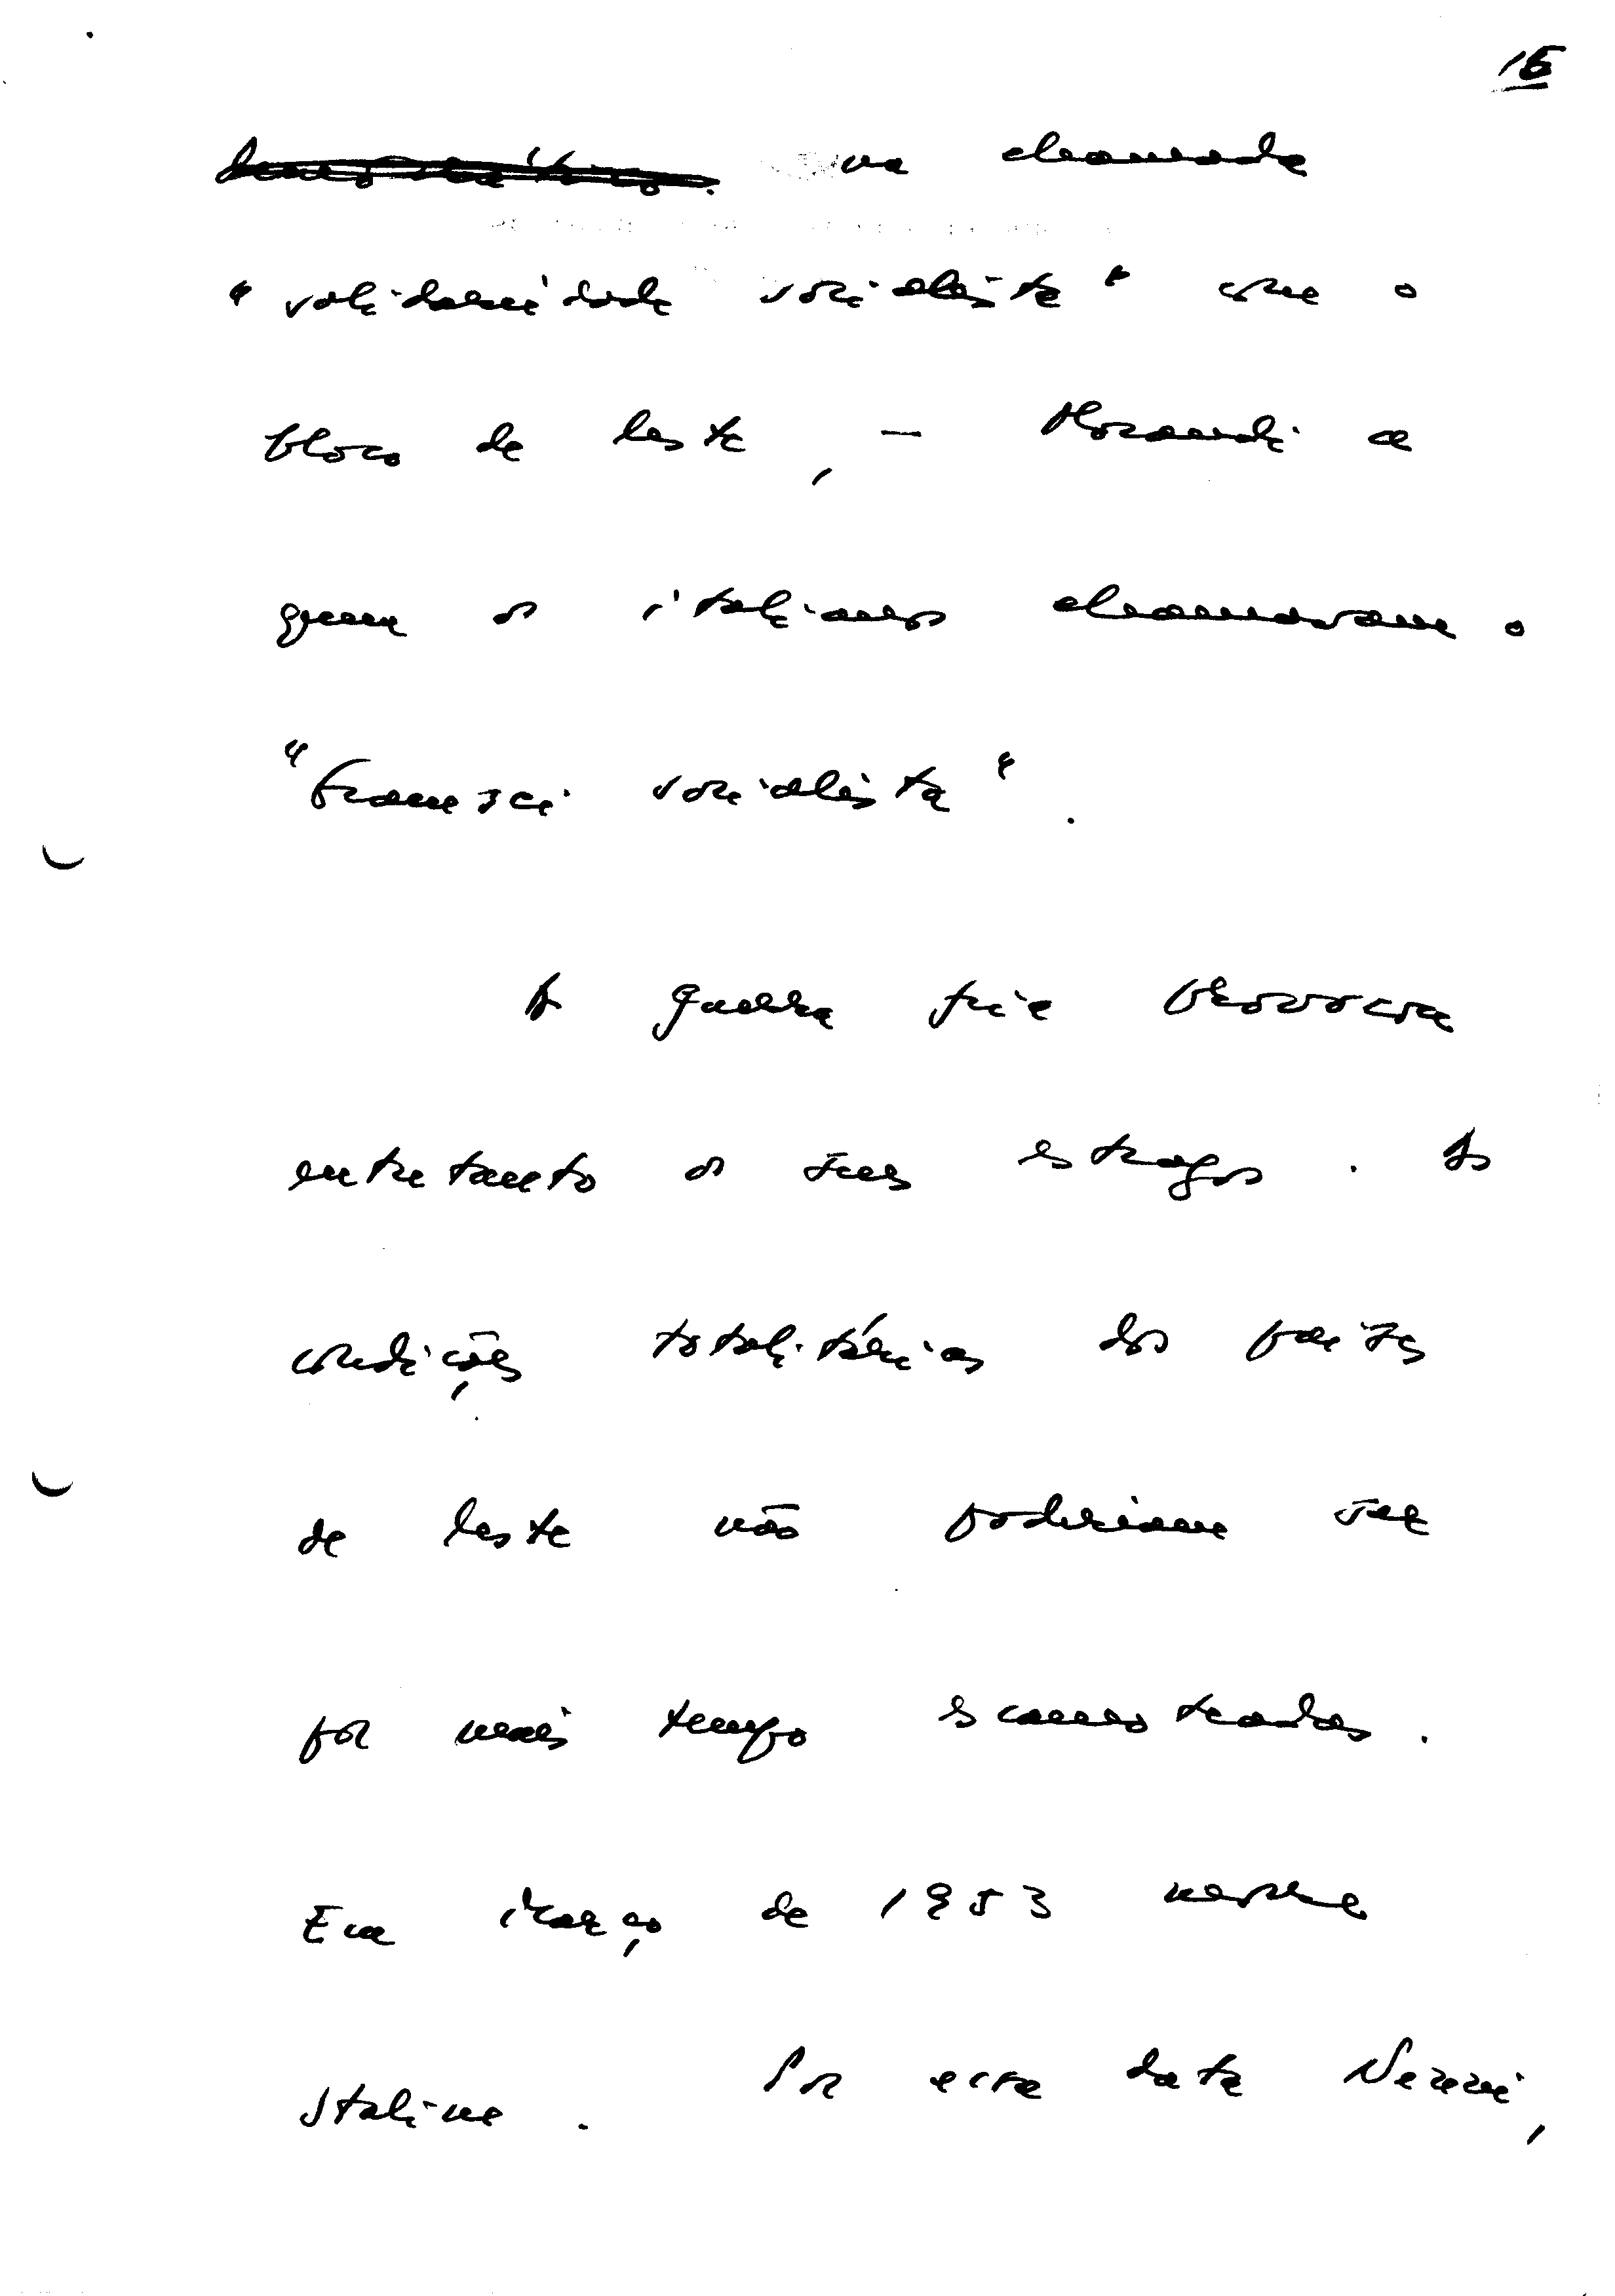 15
na chamada
"solidariedade socialista" com o
bloco de leste, — Morandi a
quem os italianos chamavam o
"Gramsci socialista".
A guerra fria provocava
entretanto os seus estragos. As
condições totalitárias dos países
de leste não poderiam ser
por mais tempo escamoteadas.
Em Março de 1953 morre
Staline. Por essa data Nenni,